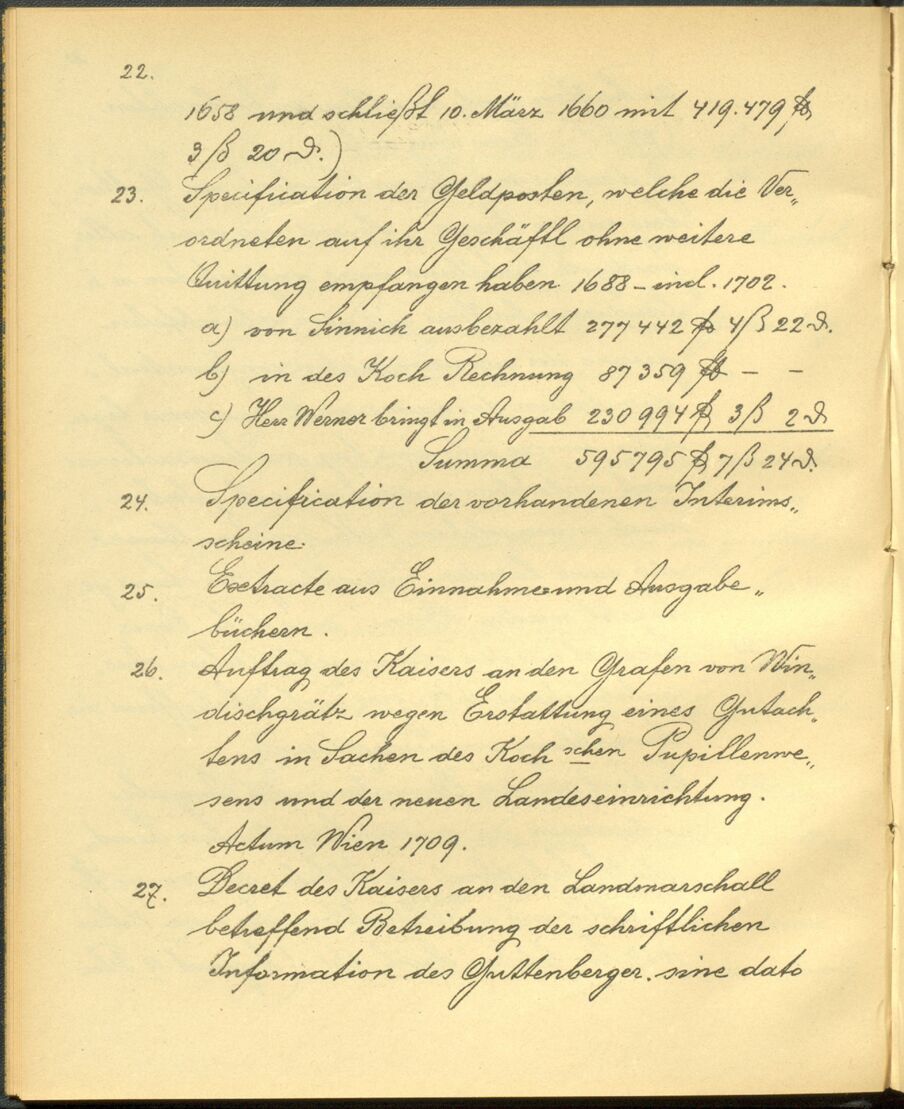 22.
1658 und schließt 10. März 1660 mit 419.479 fl
3 ß 20 ₰.)
23. Specification der Geldposten, welche die Ver„
ordneten auf ihr Geschäftl ohne weitere
Quittung empfangen haben 1688 – incl. 1702.
a) von Sinnich ausbezahlt 277442 fl 4 ß 22 ₰.
b) in des Koch Rechnung 87359 fl – –
c) Herr Werner bringt in Ausgab 230994 fl 3 ß 2 ₰
Summa 595795 fl 7 ß 24 ₰.
24. Specification der vorhandenen Interims„
scheine.
25. Extracte aus Einnahme und Ausgabe„
büchern.
26. Auftrag des Kaisers an den Grafen von Win„
dischgrätz wegen Erstattung eines Gutach„
tens in Sachen des Koch schen Pupillenwe„
sens und der neuen Landeseinrichtung.
Actum Wien 1709.
27. Decret des Kaisers an den Landmarschall
betreffend Betreibung der schriftlichen
Information des Guttenberger. sine dato